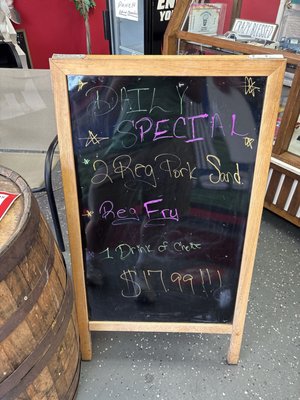 DAILY
SPECIAL
2 Reg Pork Sand.
Reg Fry
1 Drink of Choice
$17.99!!!